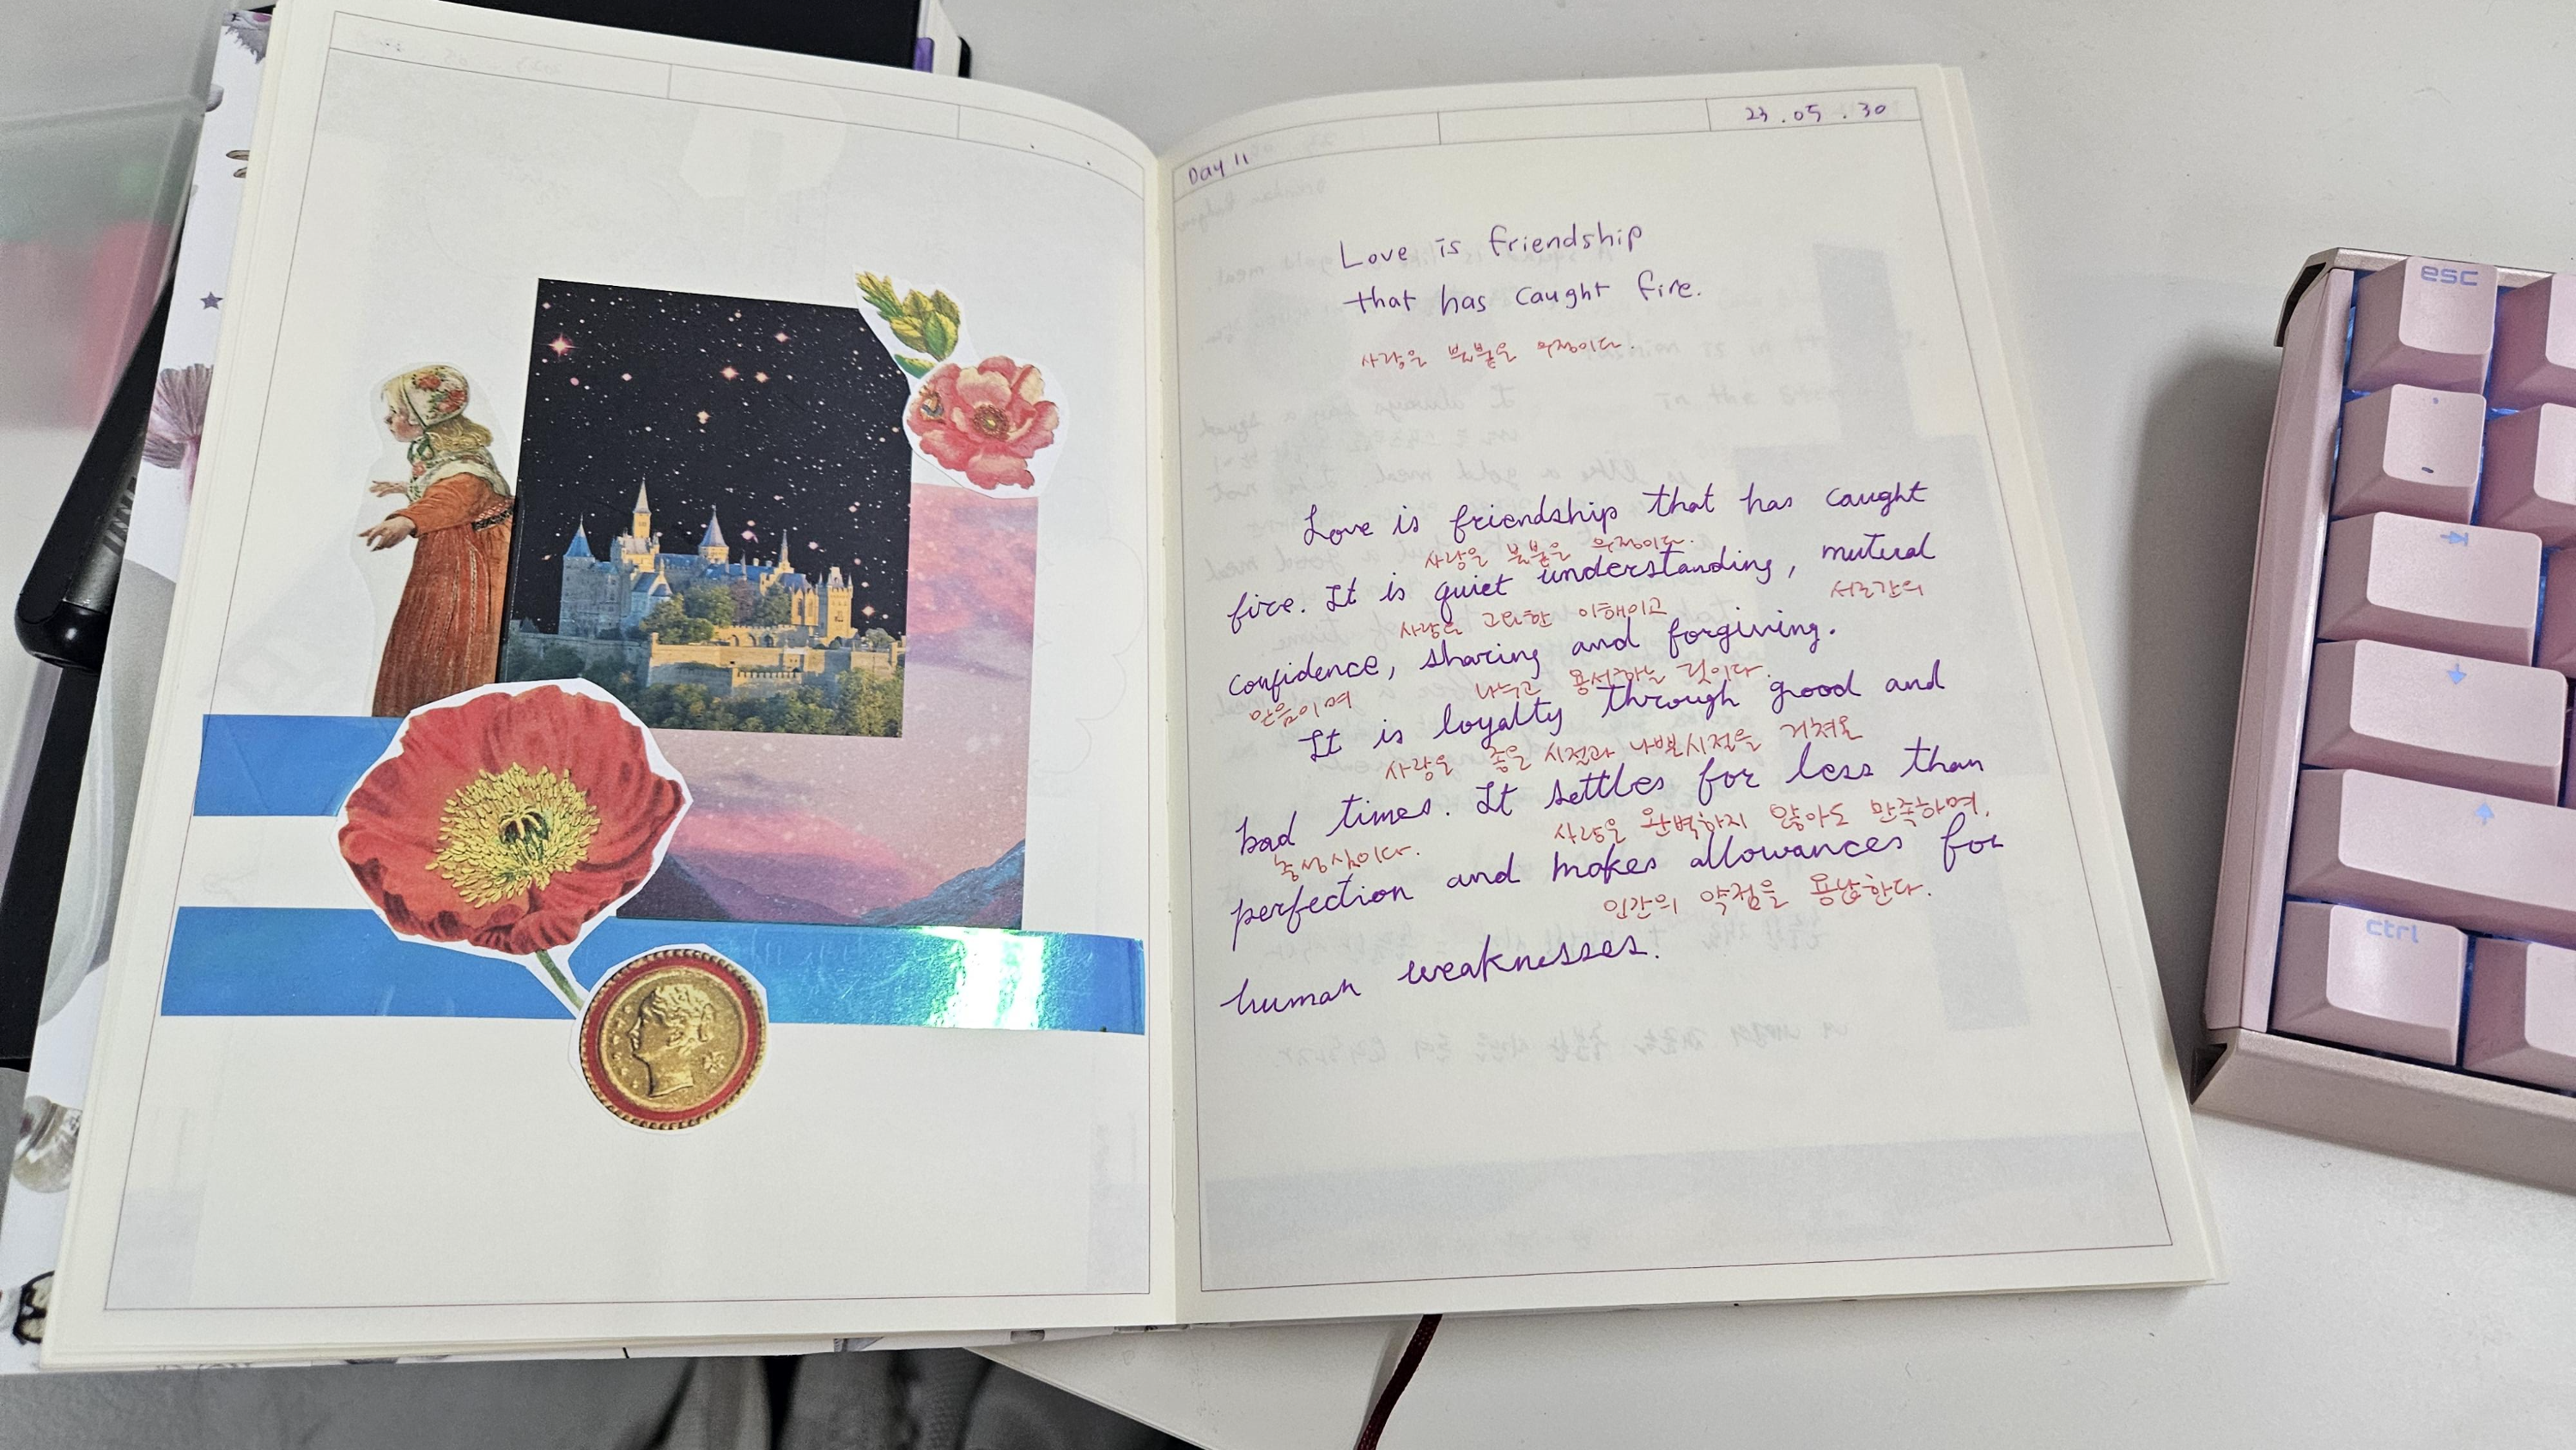 23.05.30
Day 11
Love is friendship
that has caught fire.
사랑은 불붙은 우정이다.
Love is friendship that has caught
사랑은 불붙은 우정이다.
fire. It is quiet understanding, mutual
사랑은 고요한 이해이고 서로간의
confidence, sharing and forgiving.
믿음이며 나누고 용서하는 것이다.
It is loyalty through good and
사랑은 좋을 시절과 나쁜시절을 거쳐온
bad times. It settles for less than
충성심이다. 사랑은 완벽하지 않아도 만족하며,
perfection and makes allowances for
인간의 약점을 용납한다.
human weaknesses.
esc
ctrl